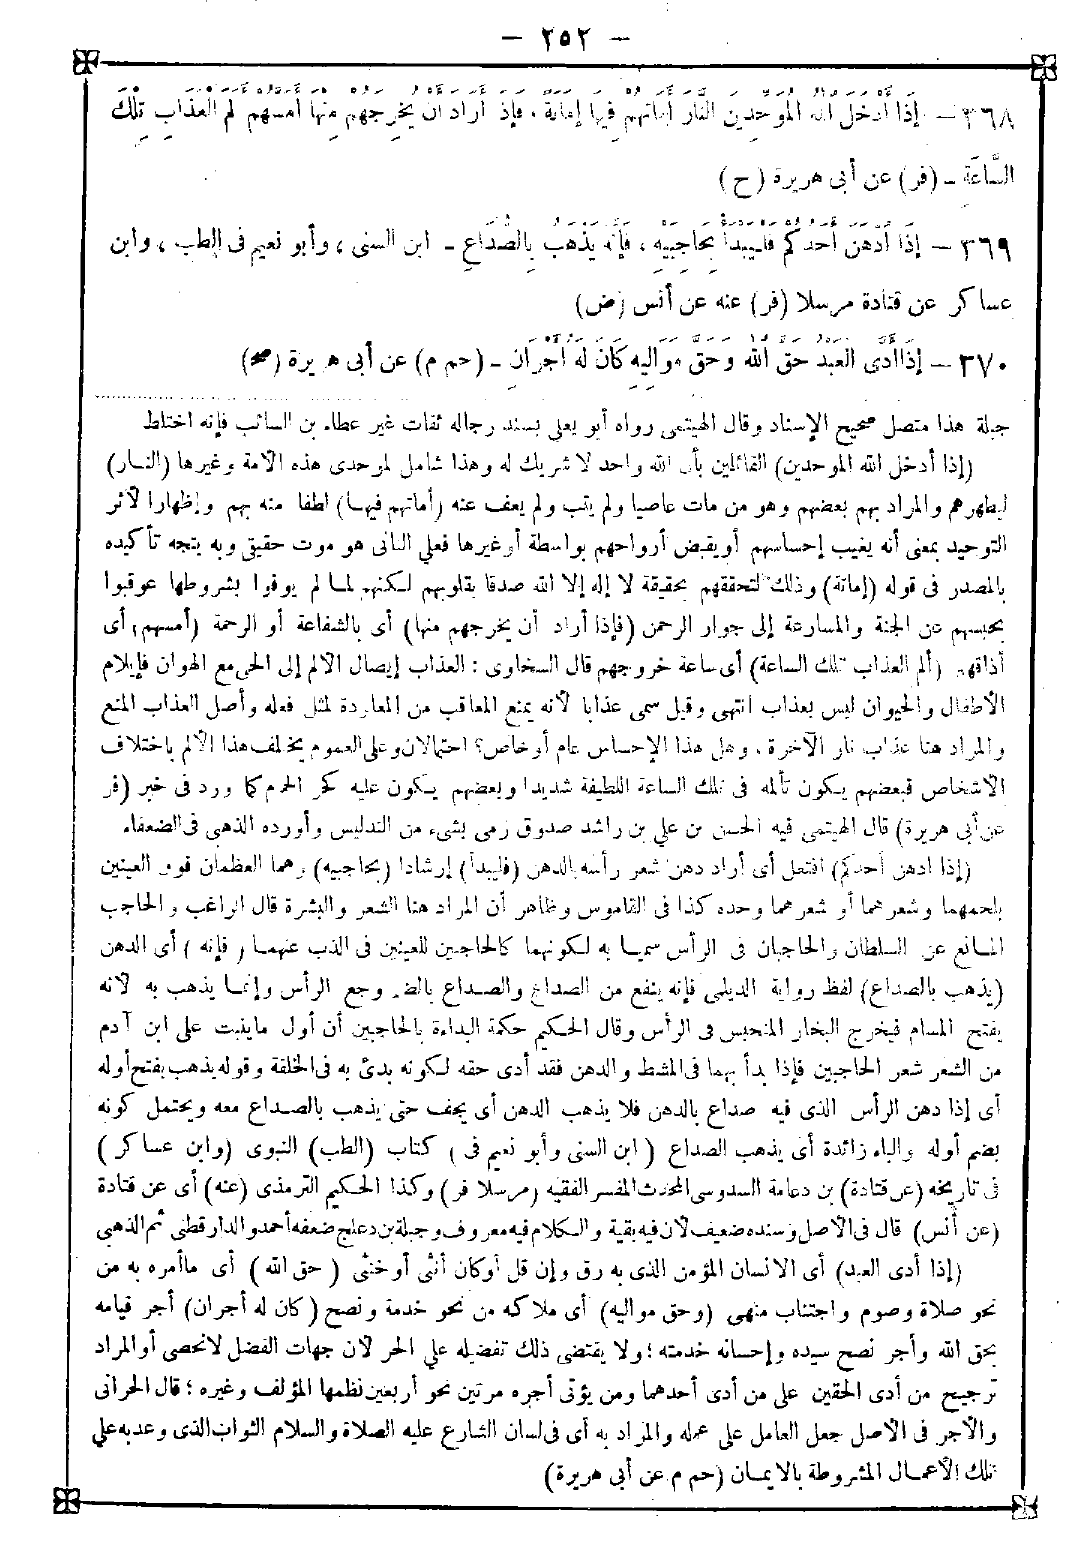 – ٢٥٢ –
٣٦٨ – إِذَا أَدْخَلَ اللّٰهُ الْمُوَحِّدِينَ النَّارَ أَمَاتَهُمْ فِيهَا إِمَاتَةً ، فَإِذَا أَرَادَ أَنْ يُخْرِجَهُمْ مِنْهَا أَمَسَّهُمْ أَلَمَ الْعَذَابِ تِلْكَ
السَّاعَةِ – (فر) عن أبى هريرة (ح)
٣٦٩ – إِذَا ادَّهَنَ أَحَدُكُمْ فَلْيَبْدَأْ بِحَاجِبَيْهِ ، فَإِنَّهُ يَذْهَبُ بِالصُّدَاعِ – ابن السنى ، وأبو نعيم فى الطب ، وابن
عساكر عن قتادة مرسلا (فر) عنه عن أنس (ض)
٣٧٠ – إِذَا أَدَّى الْعَبْدُ حَقَّ اللّٰهِ وَحَقَّ مَوَالِيهِ كَانَ لَهُ أَجْرَانِ – (حم م) عن أبى هريرة (صح)
جبلة هذا متصل صحيح الإسناد وقال الهيتمى رواه أبو يعلى بسند رجاله ثقات غير عطاء بن السائب فإنه اختلط
(إذا أدخل الله الموحدين) القائلين بأن الله واحد لا شريك له وهذا شامل لموحدى هذه الأمة وغيرها (النار)
ليطهرهم والمراد بهم بعضهم وهو من مات عاصيا ولم يتب ولم يعف عنه (أماتهم فيها) لطفا منه بهم وإظهارا لأثر
التوحيد بمعنى أنه يغيب إحساسهم أو يقبض أرواحهم بواسطة أو غيرها فعلى الثانى هو موت حقيقى وبه يتجه تأكيده
بالمصدر فى قوله (إماتة) وذلك لتحققهم بحقيقة لا إله إلا الله صدقا بقلوبهم لكنهم لما لم يوفوا بشروطها عوقبوا
بحبسهم عن الجنة والمسارعة إلى جوار الرحمن (فإذا أراد أن يخرجهم منها) أى بالشفاعة أو الرحمة (أمسهم) أى
أذاقهم (ألم العذاب تلك الساعة) أى ساعة خروجهم قال السخاوى : العذاب إيصال الألم إلى الحى مع الهوان فإيلام
الأطفال والحيوان ليس بعذاب انتهى وقيل سمى عذابا لأنه يمنع المعاقب من المعاودة لمثل فعله وأصل العذاب المنع
والمراد هنا عذاب نار الآخرة ، وهل هذا الإحساس عام أو خاص؟ احتمالان وعلى العموم يختلف هذا الألم باختلاف
الأشخاص فبعضهم يكون تألمه فى تلك الساعة اللطيفة شديدا وبعضهم يكون عليه كحر الحمام كما ورد فى خبر (فر
عن أبى هريرة) قال الهيتمى فيه الحسن بن على بن راشد صدوق رمى بشىء من التدليس وأورده الذهبى فى الضعفاء
(إذا ادهن أحدكم) افتعل أى أراد دهن شعر رأسه بالدهن (فليبدأ) إرشادا (بحاجبيه) وهما العظمان فوق العينين
بلحمهما وشعرهما أو شعرهما وحده كذا فى القاموس وظاهر أن المراد هنا الشعر والبشرة قال الراغب والحاجب
المانع عن السلطان والحاجبان فى الرأس سميا به لكونهما كالحاجبين للعينين فى الذب عنهما (فإنه) أى الدهن
(يذهب بالصداع) لفظ رواية الديلمى فإنه ينفع من الصداع والصداع بالضم وجع الرأس وإنما يذهب به لأنه
يفتح المسام فيخرج البخار المنحبس فى الرأس وقال الحكيم حكمة البداءة بالحاجبين أن أول ما ينبت على ابن آدم
من الشعر شعر الحاجبين فإذا بدأ بهما فى المشط والدهن فقد أدى حقه لكونه بدئ به فى الخلقة وقوله يذهب بفتح أوله
أى إذا دهن الرأس الذى فيه صداع بالدهن فلا يذهب الدهن أى يجف حتى يذهب بالصداع معه ويحتمل كونه
بضم أوله والباء زائدة أى يذهب الصداع (ابن السنى وأبو نعيم فى) كتاب (الطب) النبوى (وابن عساكر)
فى تاريخه (عن قتادة) بن دعامة السدوسى المحدث المفسر الفقيه (مرسلا فر) وكذا الحكيم الترمذى (عنه) أى عن قتادة
(عن أنس) قال فى الأصل وسنده ضعيف لأن فيه بقية والكلام فيه معروف وجبلة بن دعلج ضعفه أحمد والدارقطنى ثم الذهبى
(إذا أدى العبد) أى الانسان المؤمن الذى به رق وإن قل أو كان أنثى أو خنثى (حق الله) أى ما أمره به من
نحو صلاة وصوم واجتناب منهى (وحق مواليه) أى ملاكه من نحو خدمة ونصح (كان له أجران) أجر قيامه
بحق الله وأجر نصح سيده وإحسانه خدمته ؛ ولا يقتضى ذلك تفضيله على الحر لأن جهات الفضل لا تحصى أو المراد
ترجيح من أدى الحقين على من أدى أحدهما ومن يؤتى أجره مرتين نحو أربعين نظمها المؤلف وغيره ؛ قال الحرانى
والأجر فى الأصل جعل العامل على عمله والمراد به أى فى لسان الشارع عليه الصلاة والسلام الثواب الذى وعد به على
تلك الأعمال المشروطة بالايمان (حم م عن أبى هريرة)